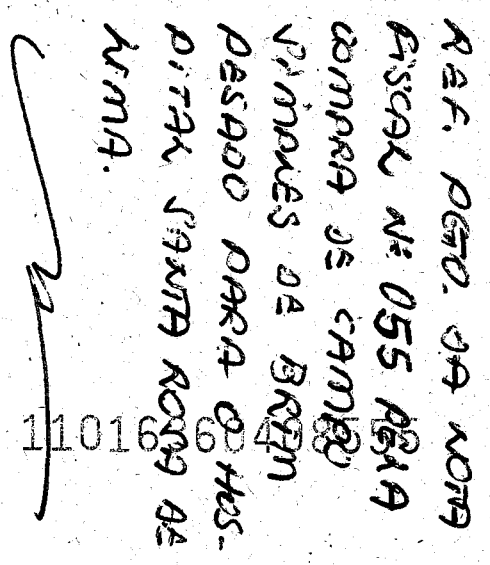 REF. PGTO. DA NOTA
FISCAL Nº 055 PELA
COMPRA DE CAMPO
SIMPLES DE BRIM
PESADO PARA O HOS-
PITAL SANTA ROSA DE
LIMA.